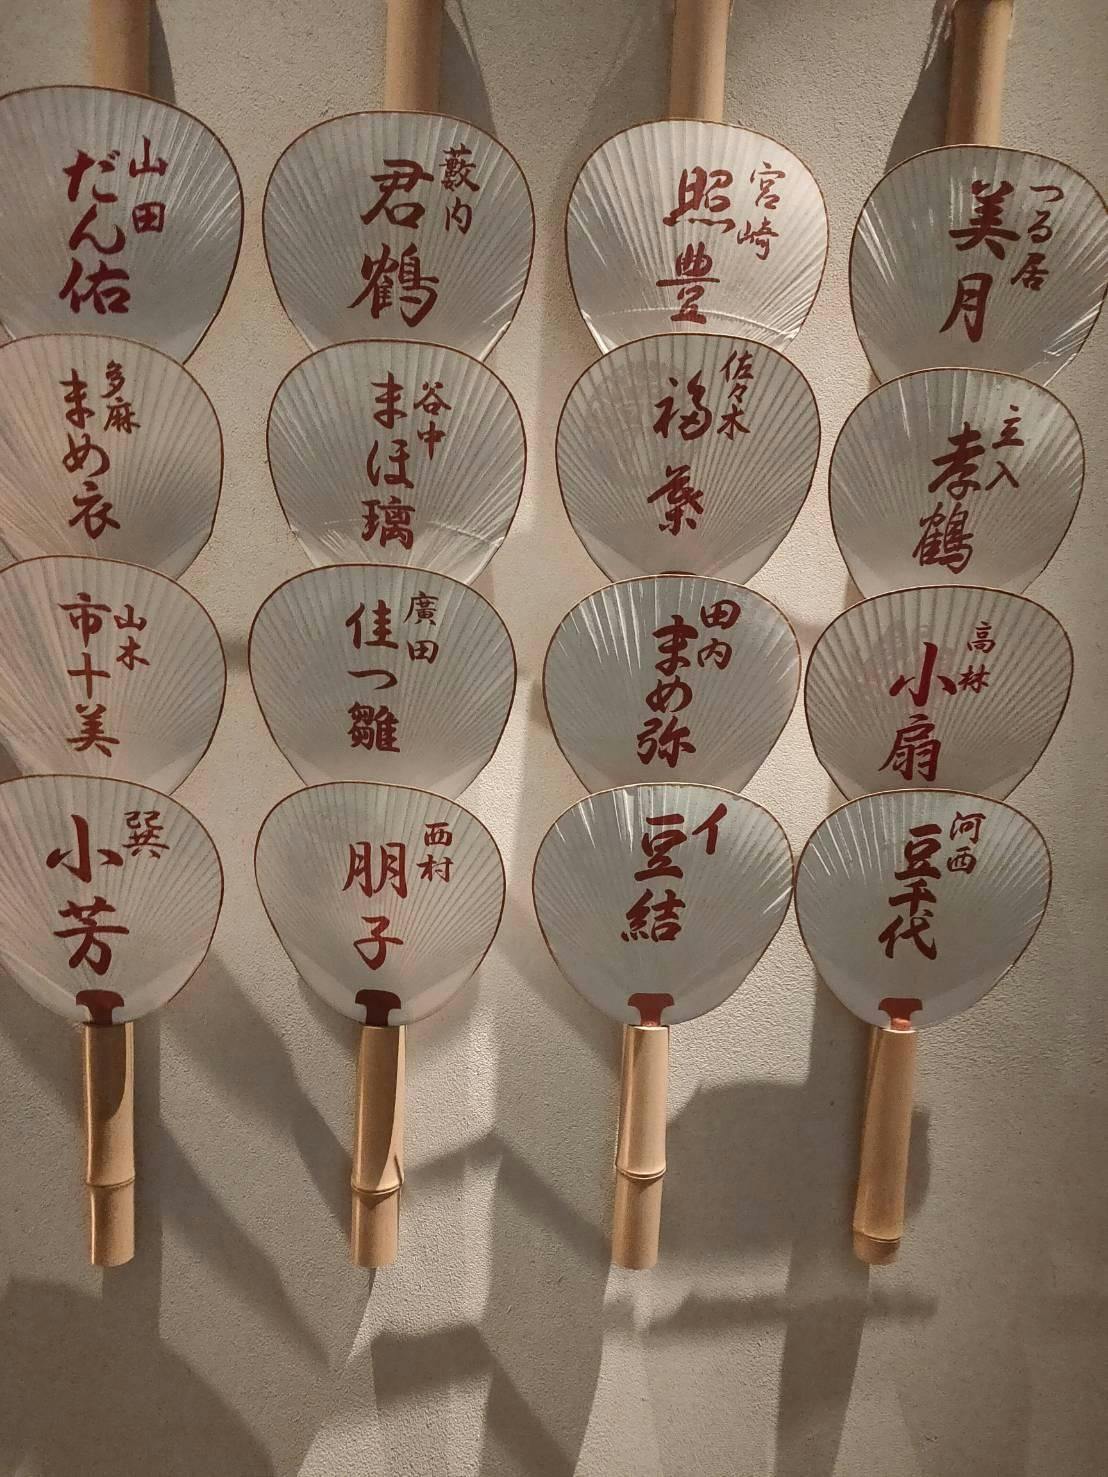 山田
だん佑
藪内
君鶴
宮崎
照豊
つる居
美月
多麻
まめ衣
谷中
まほ璃
佐々木
福葉
立入
孝鶴
山木
市十美
廣田
佳つ雛
田内
まめ弥
高林
小扇
巽
小芳
西村
朋子
イ
豆結
河西
豆千代